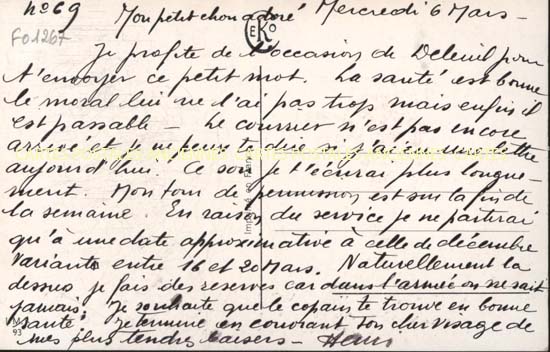 n° 69 Mon petit chou adoré Mercredi 6 Mars -
F01267
EKO
Je profite de l'occasion de Deleuil pour
t'envoyer ce petit mot. La santé est bonne
le moral lui ne l'ai pas trop mais enfin il
est passable - Le courrier n'est pas encore
arrivé et je ne peux te dire si j'ai eu une lettre
aujourd'hui. Ce soir je t'écrirai plus longue-
ment. Mon tour de permission est sur la fin de
la semaine. En raison du service je ne partirai
qu'à une date approximative à celle de décembre
variante entre 16 et 20 Mars. Naturellement la
dessus je fais des reserves car dans l'armée on ne sait
jamais. Je souhaite que le copain te trouve en bonne
santé. Je termine en couvrant ton cher visage de
mes plus tendres baisers - Henri
Imprimé en
93